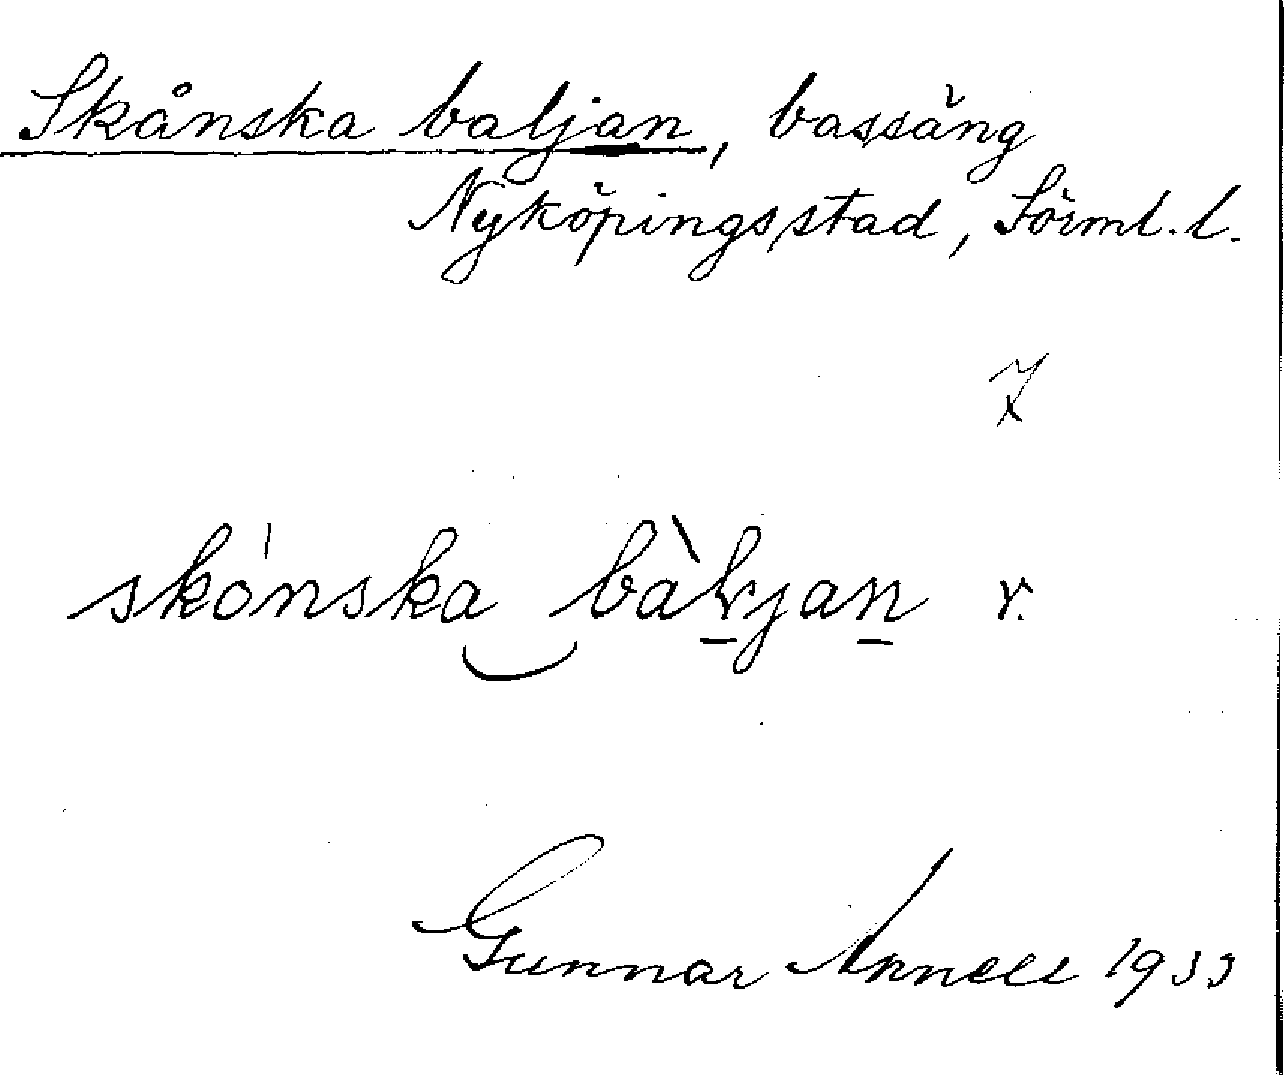 Skånska baljan, bassäng
Nyköpings stad, Sörml. l.
7
skónska bàljan r.
Gunnar Annell 1933